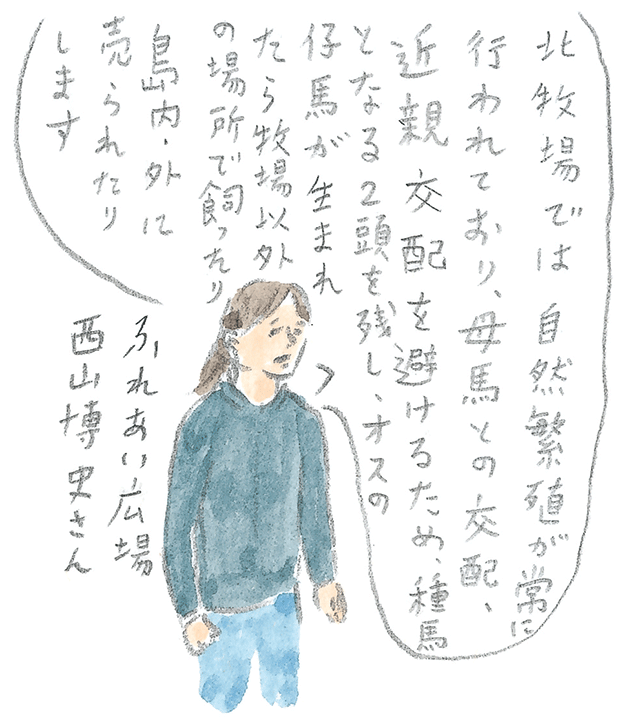 北牧場では自然繁殖が常に
行われており、母馬との交配、
近親交配を避けるため、種馬
となる2頭を残し、オスの
仔馬が生まれ
たら牧場以外
の場所で飼ったり
島内・外に
売られたり
します
ふれあい広場
西山博史さん